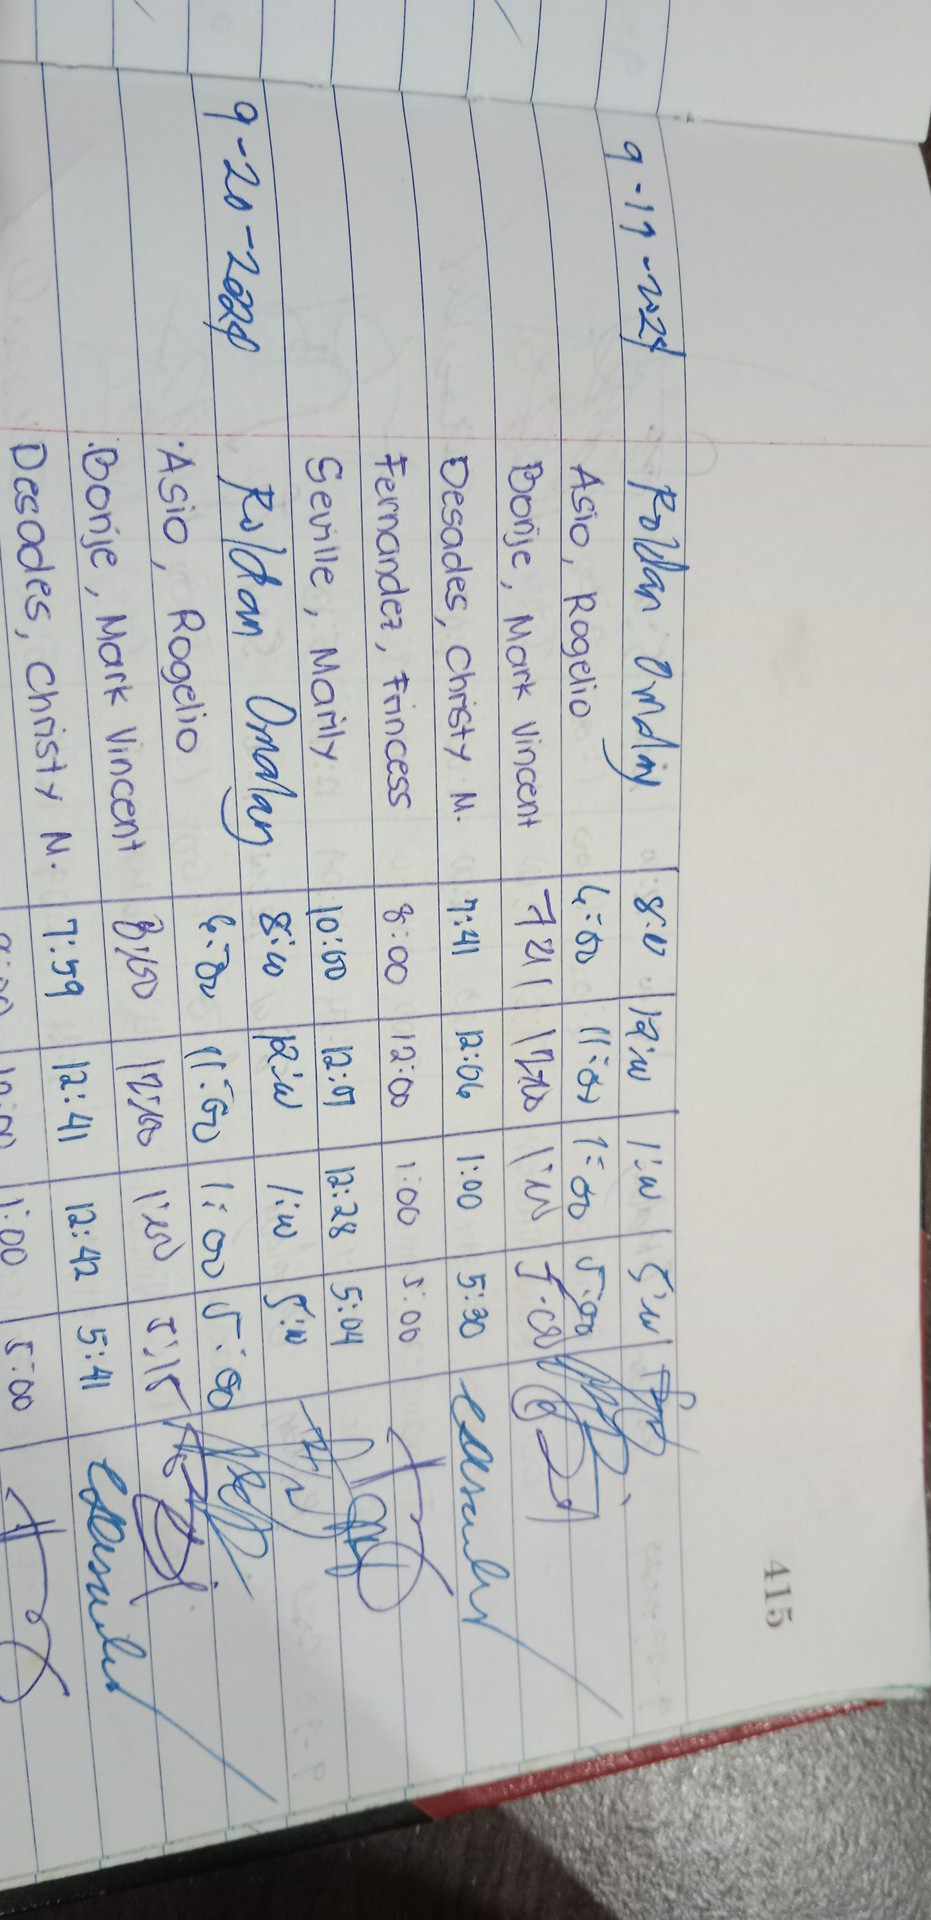 415
9-19-2024 Roldan Omalay 8:00 12:00 1:00 5:00
Asio, Rogelio 6:00 11:00 1:00 5:00
Borije, Mark Vincent 12:00 1:00 5:00
Desades, Christy M. 7:41 12:06 1:00 5:30
Fernandez, Frincess 8:00 12:00 1:00 5:00
Seville, Marily 10:00 12:07 12:28 5:04
9-20-2024 Roldan Omalay 8:00 12:00 1:00 5:00
Asio, Rogelio 6:00 11:00 1:00 5:00
Borije, Mark Vincent 8:00 12:00 1:00 5:15
Desades, Christy M. 7:59 12:41 12:42 5:41
1:00 5:00